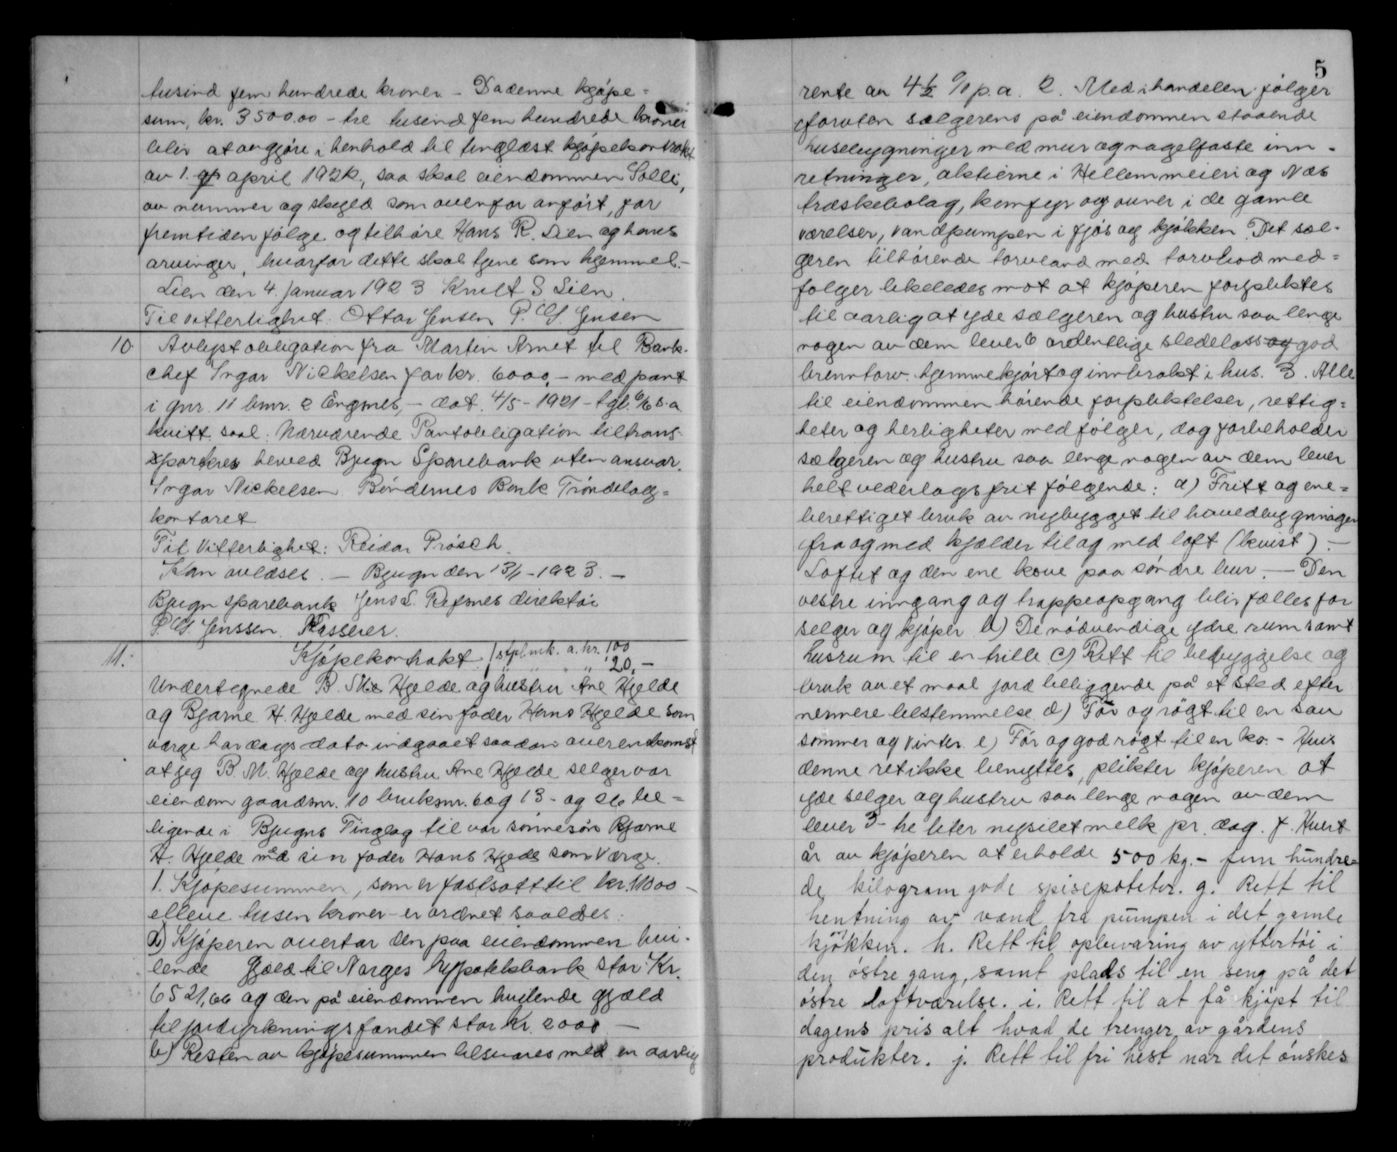 tusind fem hundrede kroner – Da denne kjøpe=
sum, kr. 3500.00 – tre tusind fem hundrede kroner
blir at avgjøre i henhold til tinglæst kjøpekontrakt
av 1. april 1921, saa skal eiendommen Solli,
av nummer og skyld som ovenfor anført, for
fremtiden følge og tilhøre Hans R. Lien og hans
arvinger, hvorfor dette skal tjene som hjemmel.–
Lien den 4. januar 1923 Knut S Lien.
Til vitterlighet: Ottar Jensen P. G. Jensen
10. Avlyst obligation fra Martin Arnet til Bank-
chef Ingar Nickelsen for kr. 6000,– med pant
i gnr. 11 bnr. 2 Engmes,– dat. 4/5–1921– tgl. 6/6 s.a
kvitt. saal: Nærværende Pantobligation tiltrans-
sporteres herved Bjugn Sparebank uten ansvar.
Ingar Nickelsen Bøndernes Bank Trøndelag=
kontoret
Til Vitterlighet: Reidar Prøsch.
Kan avlæses. – Bjugn den 13/1–1923.–
Bjugn sparebank Jens L. Refsnes direktør
P. G. Jenssen. Kasserer.
11. Kjøpekontrakt (stpl.mk. a. kr. 100
" " " 20,–
Undertegnede B. M. Hjelde og hustru Ane Hjelde
og Bjarne H. Hjelde med sin fader Hans Hjelde som
værge har dags dato indgaaet saadan overenskomst
at jeg B. M. Hjelde og hustru Ane Hjelde selger vor
eiendom gaardsnr. 10 bruksnr. 6 og 13– og 26 be=
ligende i Bjugns Tinglag til vor sønnesøn Bjarne
H. Hjelde med sin fader Hans Hjelde som Værge.
1. Kjøpesummen, som er fastsatt til kr. 11000 –
elleve tusen kroner er ordnet saaledes:
a) Kjøperen overtar den paa eiendommen hvi-
lende gjæld til Norges hypotekbank stor Kr.
6521,66 og den på eiendommen hvilende gjæld
til jordyrkningsfondet stor kr. 2000 –
b) Resten av kjøpesummen tilsvares med en aarlig
5
rente av 4½ % p.a. 2. Med i handelen følger
foruten sælgerens på eiendommen staaende
husebygninger med mur og nagelfaste inn-
retninger, aktierne i Hellem meieri og Næs
træskebolag, komfyr og ovner i de gamle
værelser, vandpumpen i fjøs og kjøkken. Det sæl-
geren tilhørende torvland med torvbod med=
følger likeledes mot at kjøperen forpliktes
til aarlig at yde sælgeren og hustru saa lenge
nogen av dem lever 6 ordentlige sledelass og god
brenntorv hjemmekjørt og innbrakt i hus. 3. Alle
til eiendommen hørende forpliktelser, rettig=
heter og herligheter medfølger, dog forbeholder
sælgeren og hustru saa lenge nogen av dem lever
helt vederlagsfrit følgende: a) Fritt og ene=
berettiget bruk av nybygget til hovedbygningen
fra og med kjælder til og med loft (kvist).–
Loftet og den ene kove paa søndre bur. – Den
vestre inngang og trappeopgang blir fælles for
selger og kjøper b) De nødvendige ydre rum samt
husrum til en trille c) Rett til bebyggelse og
bruk av et maal jord beliggende på et sted efter
nærmere bestemmelse d) Fôr og røgt til en sau
sommer og vinter e) Fôr og god røgt til en ko. – Hvis
denne ret ikke benyttes, plikter kjøperen at
yde selger og hustru saa lenge nogen av dem
lever 3– tre liter nysilet melk pr. dag. f. Hvert
år av kjøperen at erholde 500 kg. – fem hundre=
de kilogram gode spisepoteter. g. Rett til
hentning av vand fra pumpen i det gamle
kjøkken. h. Rett til opbevaring av yttertøi i
den østre gang, samt plads til en seng på det
østre loftværelse. i. Rett til at få kjøpt til
dagens pris alt hvad de trenger av gårdens
produkter. j. Rett til fri hest når det ønskes